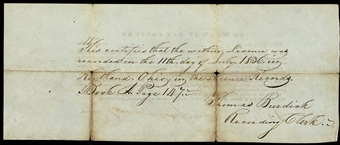 This certifies that the within License was
recorded on the 11th day of July 1836 in
Kirtland, Ohio, in the License Records,
Book A. Page 147.
Thomas Burdick
Recording Clerk.